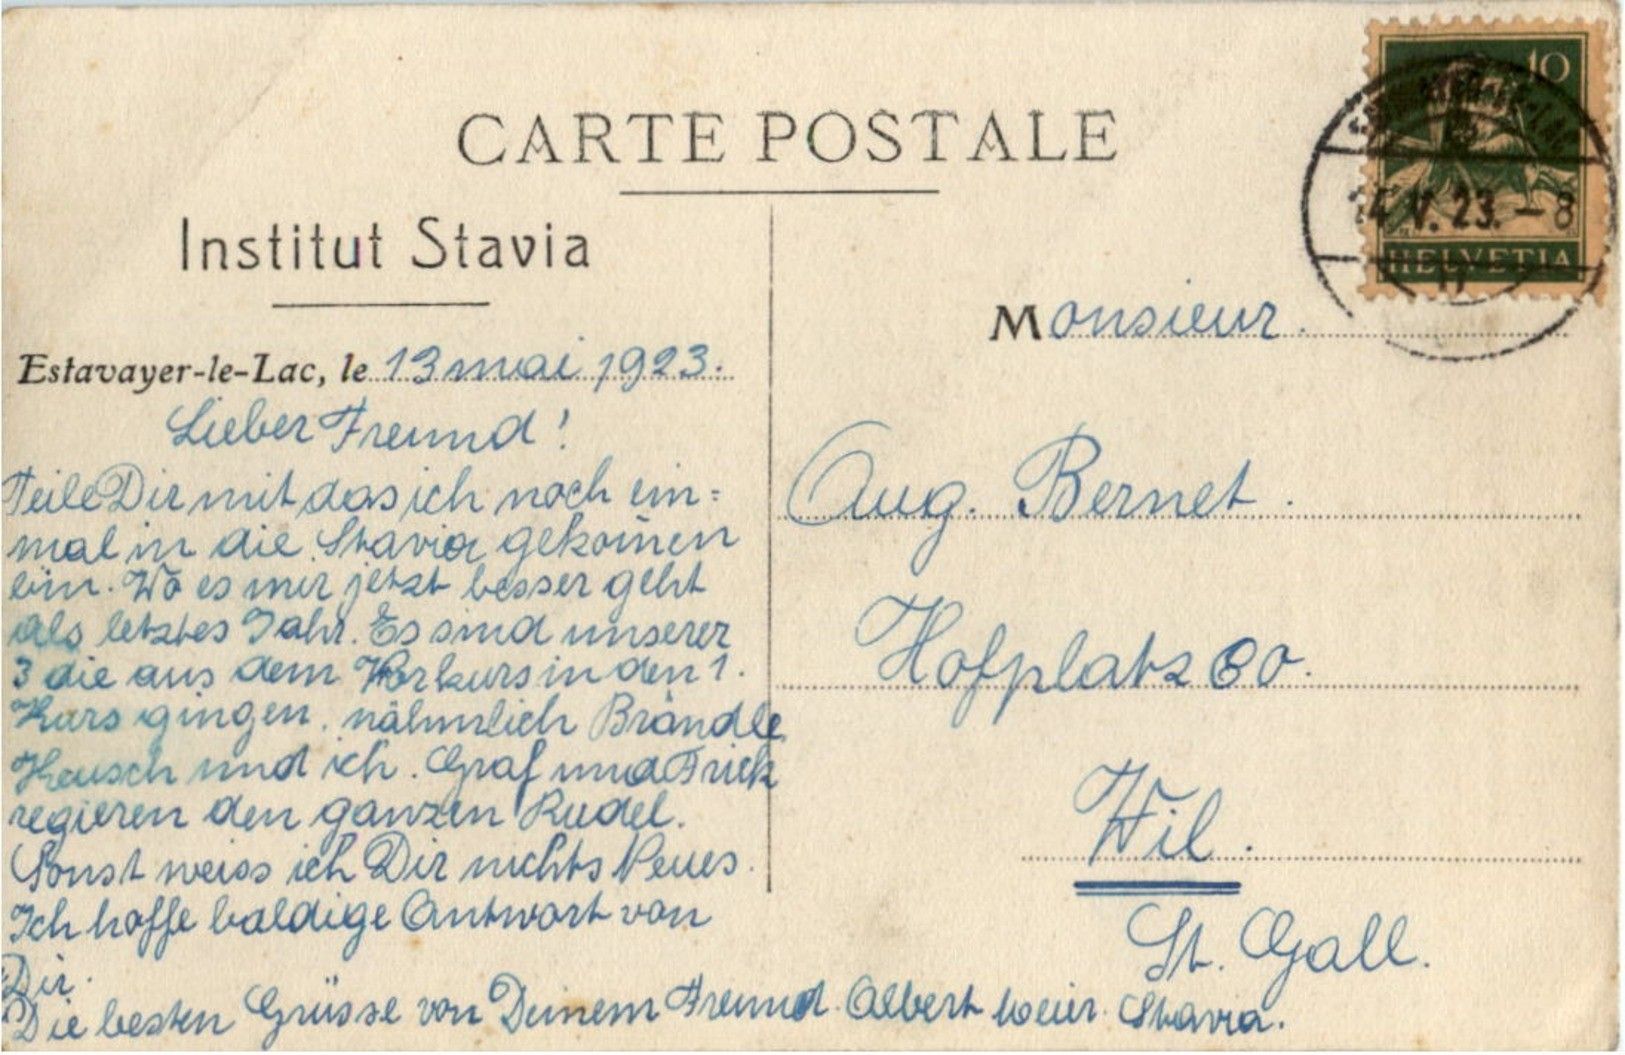 CARTE POSTALE
Institut Stavia
Estavayer-le-Lac, le 13 mai 1923.
Lieber Freund!
Teile Dir mit das ich noch ein=
mal in die Stavia gekom̄en
bin. Wo es mir jetzt besser geht
als letztes Jahr. Es sind unserer
3 die aus dem Vorkurs in den 1.
Kurs gingen. nähmlich Brändle
Hausch und ich. Graf und Frick
regieren den ganzen Rudel.
Sonst weiss ich Dir nichts Neues.
Ich hoffe baldige Antwort von
Dir.
Die besten Grüsse von Deinem Freund Albert Stavia.
10
14.V.23.-8
HELVETIA
Monsieur.
Aug. Bernet.
Hofplatz 60.
Wil.
St. Gall.